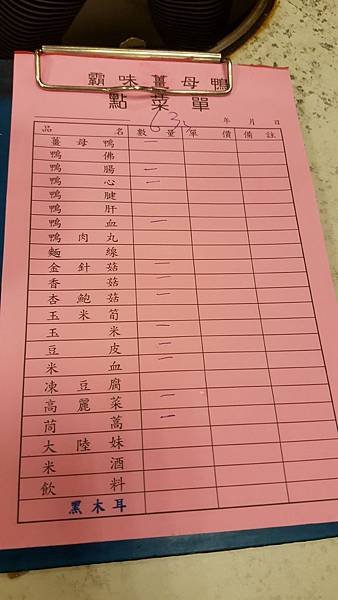 霸味薑母鴨
點菜單
63
年 月 日
品名 數量 單價 備註
薑母鴨 一
鴨佛
鴨腸 一
鴨心 一
鴨腱
鴨肝
鴨血 一
鴨肉丸
麵線
金針菇 一
香菇 一
杏鮑菇 一
玉米筍
玉米 一
豆皮 一
米血 一
凍豆腐
高麗菜 一
茼蒿 一
大陸妹
米酒
飲料
黑木耳